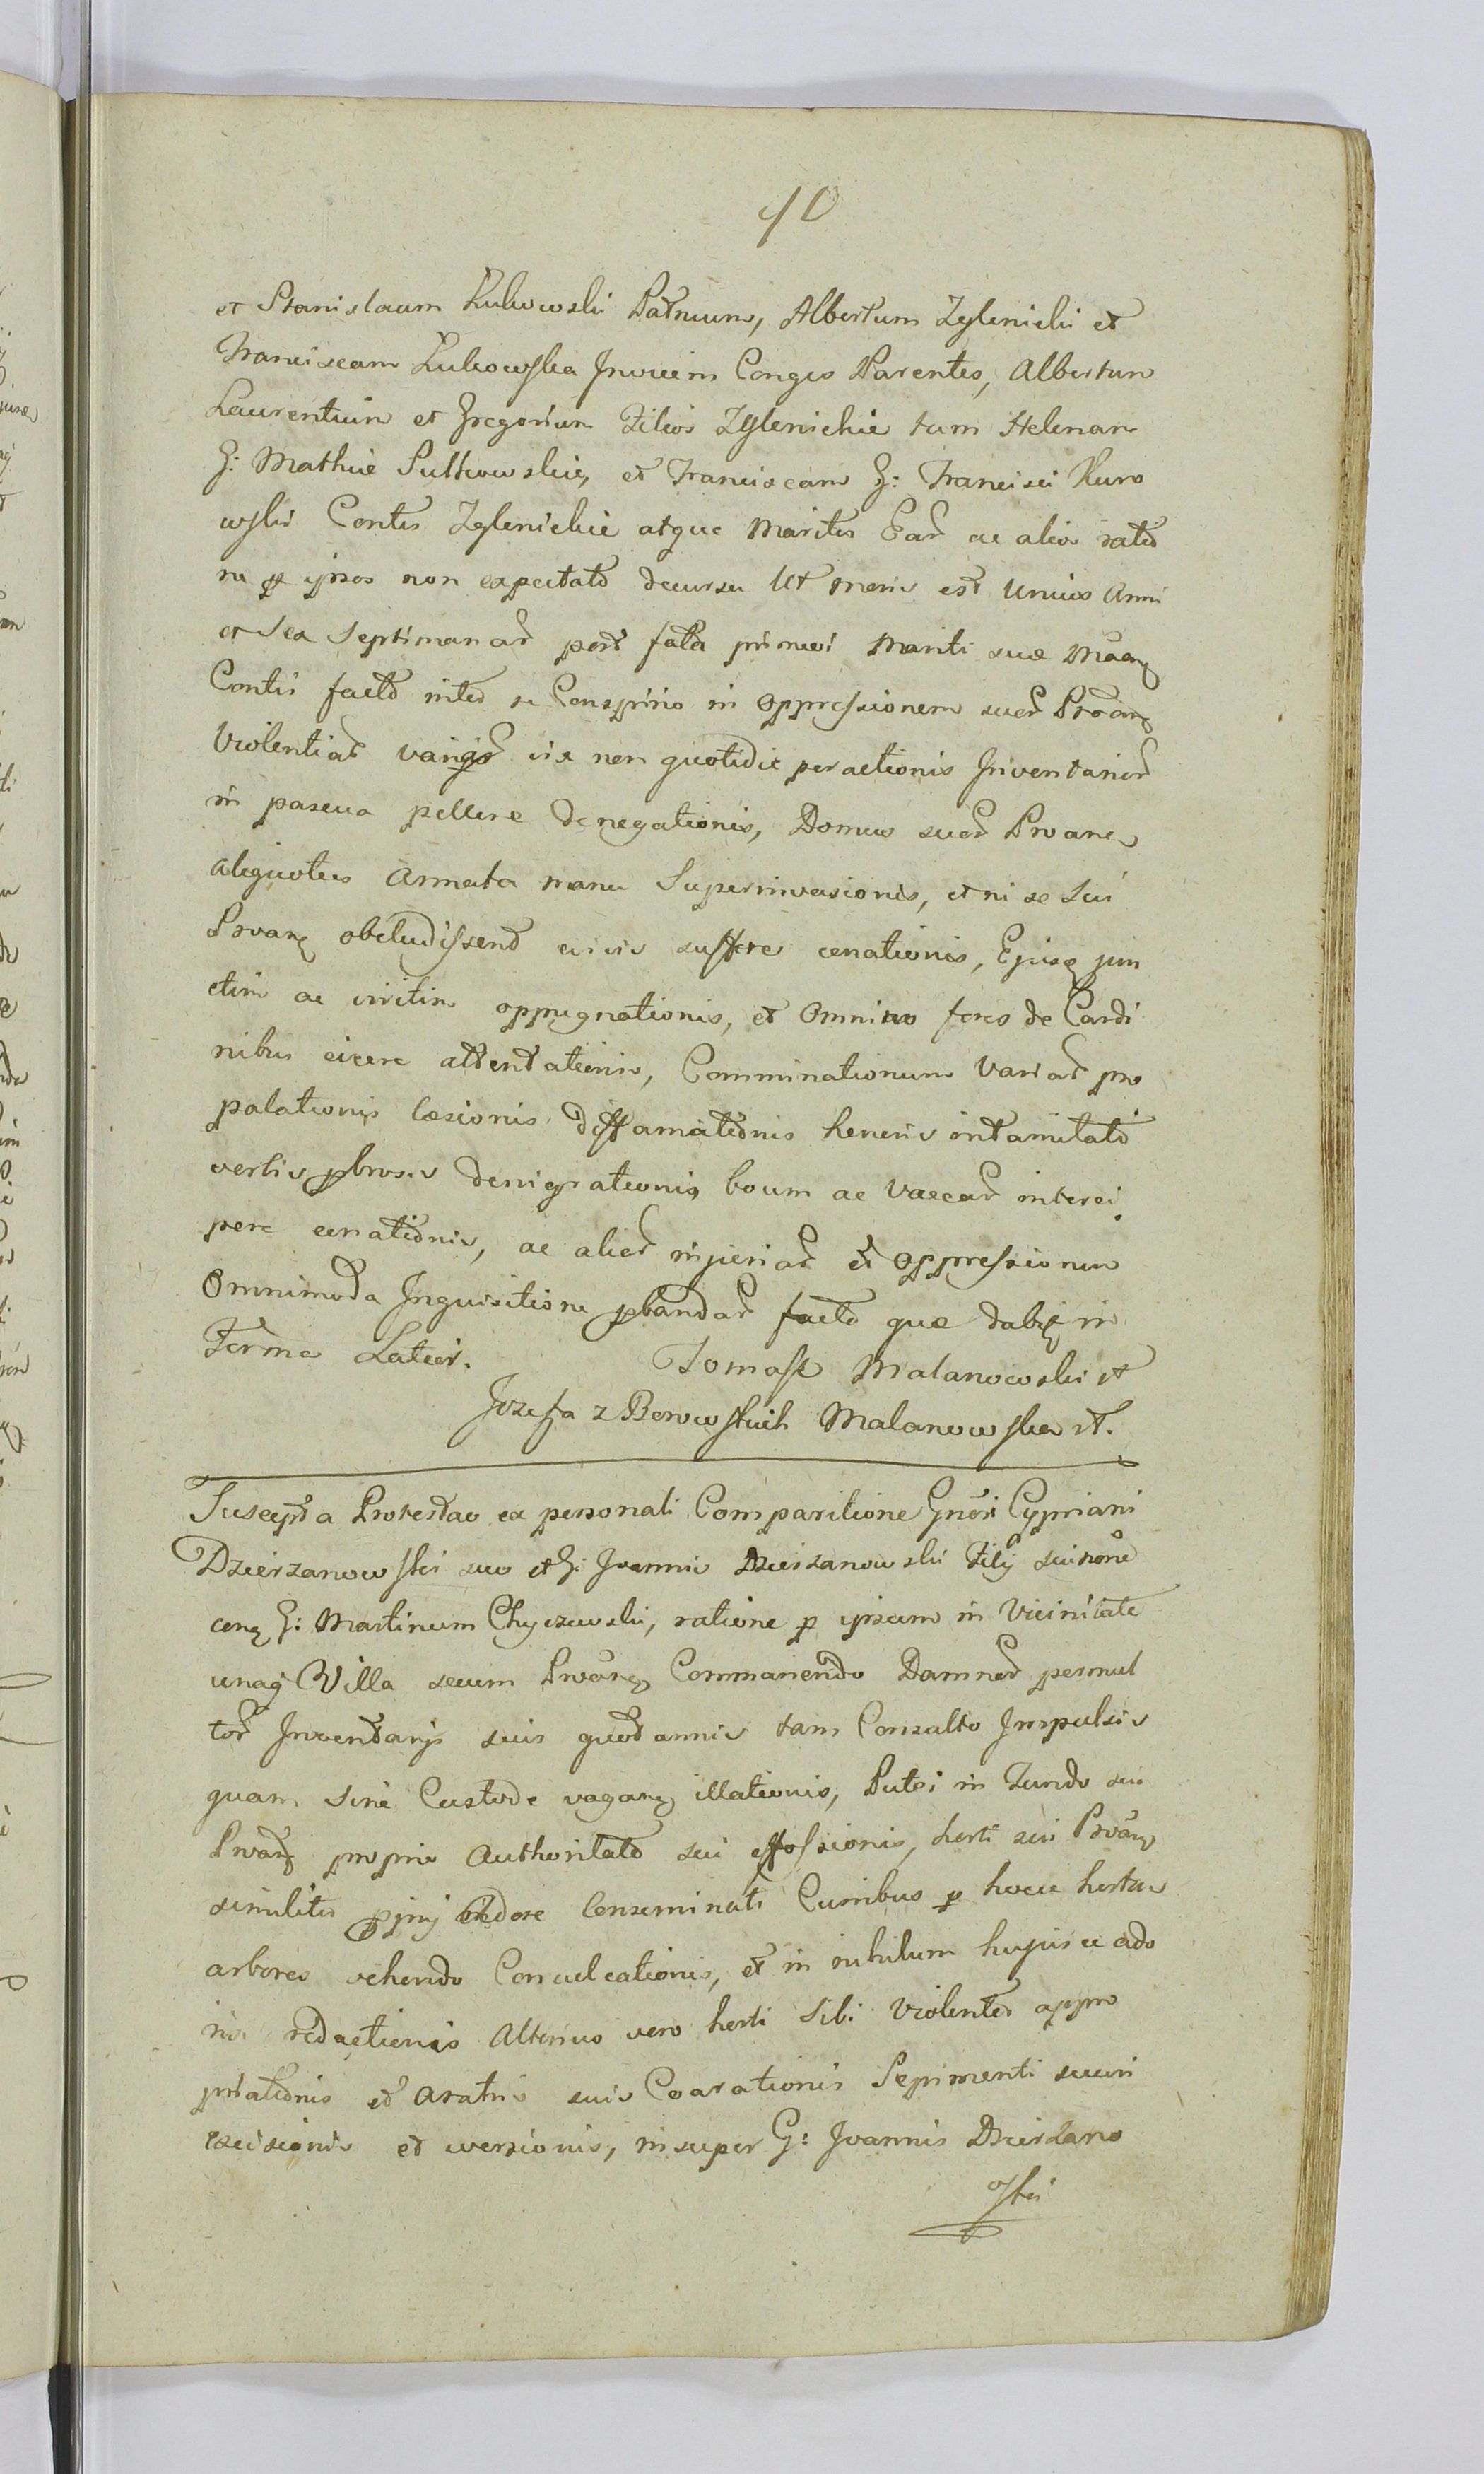 10
et Stanislaum Kukowski Patruum, Albertum Zglenicki et
Franciscam Kukowska Invicem Conges Parentes, Albertum
Laurentium et Gregorium Filios Zglenickie tum Helenam
G: Mathiæ Sulkowskie, et Franciscam G: Francisci Kuro
wski Contes Zglenickie atque Maritos Ear ac alios
ne p ipsos non expectato decursu Ut moris est Unius Anni
et Sex Septimanar post fata primevi Mariti suæ
Contis facto inter se Conspirio in oppressionem suor
Violentiar vix non quotidie peractionis Inventarior
in pascua pellere denegationis, Domus suor Proane
aliquoties Armata manu Superinvasionis, et ni se Sui
obcludissent cenationis, Ejusq jun
ctim ac viritim oppugnationis, et Omnino fores de Cardi
nibus eicere attentationis, Comminationum Variar pro
palationis læsionis diffamationis honoris intaminato
verbis pbrosis denigrationis boum ac Vaccar interci
pere conationis, ac alior injuriar et Oppressionum
Omnimoda Inquisitione pbandar facto quæ dabit in
Forma Latior. Tomasz Malanowski
Jozefa z Borowskich Malanowska
Suscepta Protestao ex personali Comparitione Gnosi Cypriani
Dzierzanowski suo et G: Joannis Dzierzanowski Filij sui none
conq G: Martinum Chyczewski, ratione p ipsum in Vicinitate
unaq Villa secum Commanendo Damnor permul
tor Inventarijs suis quotannis tam Consulto Impulsis
quam sine Custode vagan illationis, Putei in Fundo suo
propria Authoritate sui effossionis, horti sui
similiter Conseminati Curribus p hocce hortum
arbores vehendo Conculcationis, et in nihilum hujusce ado
redactionis Alterius vero horti Sibi Violenter appro
priationis et aratris suis Coarationis Sepimenti
excisionis et eversionis, insuper G: Joannis Dzierzano
wski